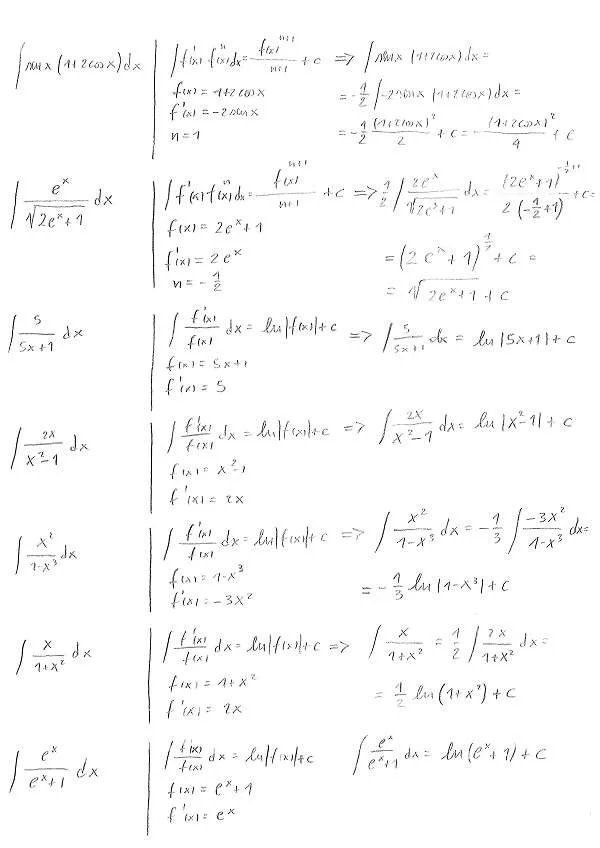 ∫ sin x (1+2cos x) dx | ∫ f'(x) f(x)^n dx = f(x)^{n+1}/(n+1) + c => ∫ sin x (1+2cos x) dx =
f(x) = 1+2cos x = -1/2 ∫ -2sin x (1+2cos x) dx =
f'(x) = -2sin x
n = 1 = -1/2 (1+2cos x)^2/2 + c = -(1+2cos x)^2/4 + c
∫ e^x/√(2e^x+1) dx | ∫ f'(x) f(x)^n dx = f(x)^{n+1}/(n+1) + c => 1/2 ∫ 2e^x/√(2e^x+1) dx = (2e^x+1)^{-1/2+1}/(2(-1/2+1)) + c =
f(x) = 2e^x+1
f'(x) = 2e^x = (2e^x+1)^{1/2} + c =
n = -1/2 = √(2e^x+1) + c
∫ 5/(5x+1) dx | ∫ f'(x)/f(x) dx = ln|f(x)| + c => ∫ 5/(5x+1) dx = ln|5x+1| + c
f(x) = 5x+1
f'(x) = 5
∫ 2x/(x^2-1) dx | ∫ f'(x)/f(x) dx = ln|f(x)| + c => ∫ 2x/(x^2-1) dx = ln|x^2-1| + c
f(x) = x^2-1
f'(x) = 2x
∫ x^2/(1-x^3) dx | ∫ f'(x)/f(x) dx = ln|f(x)| + c => ∫ x^2/(1-x^3) dx = -1/3 ∫ -3x^2/(1-x^3) dx =
f(x) = 1-x^3
f'(x) = -3x^2 = -1/3 ln|1-x^3| + c
∫ x/(1+x^2) dx | ∫ f'(x)/f(x) dx = ln|f(x)| + c => ∫ x/(1+x^2) = 1/2 ∫ 2x/(1+x^2) dx =
f(x) = 1+x^2 = 1/2 ln(1+x^2) + c
f'(x) = 2x
∫ e^x/(e^x+1) dx | ∫ f'(x)/f(x) dx = ln|f(x)| + c ∫ e^x/(e^x+1) dx = ln(e^x+1) + c
f(x) = e^x+1
f'(x) = e^x